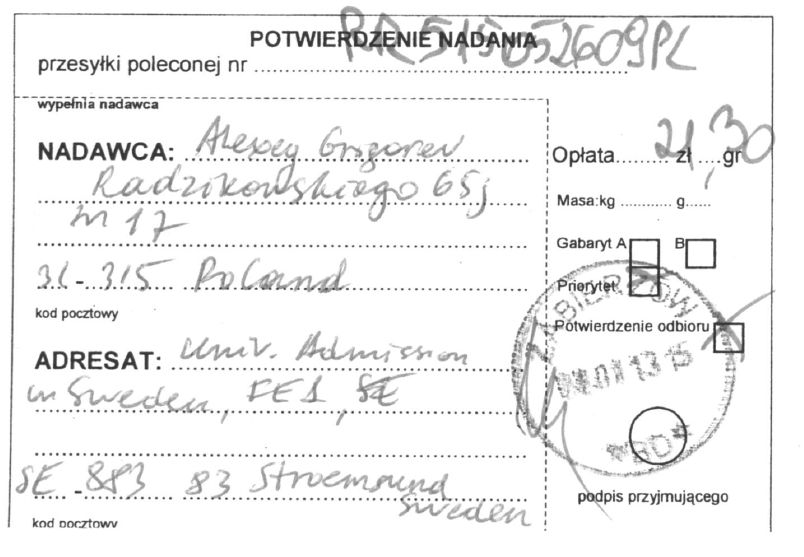 POTWIERDZENIE NADANIA
przesyłki poleconej nr RR515052609PL
wypełnia nadawca
NADAWCA: Alexey Grigorev
Radzikowskiego 65j
m 17
31-315 Poland
kod pocztowy
ADRESAT: Univ. Admission
in Sweden, FE1, SE
SE-883 83 Stroemsund
Sweden
kod pocztowy
Opłata 21,30 zł gr
Masa:kg g
Gabaryt A B
Priorytet
Potwierdzenie odbioru
ZABIERZÓW
podpis przyjmującego